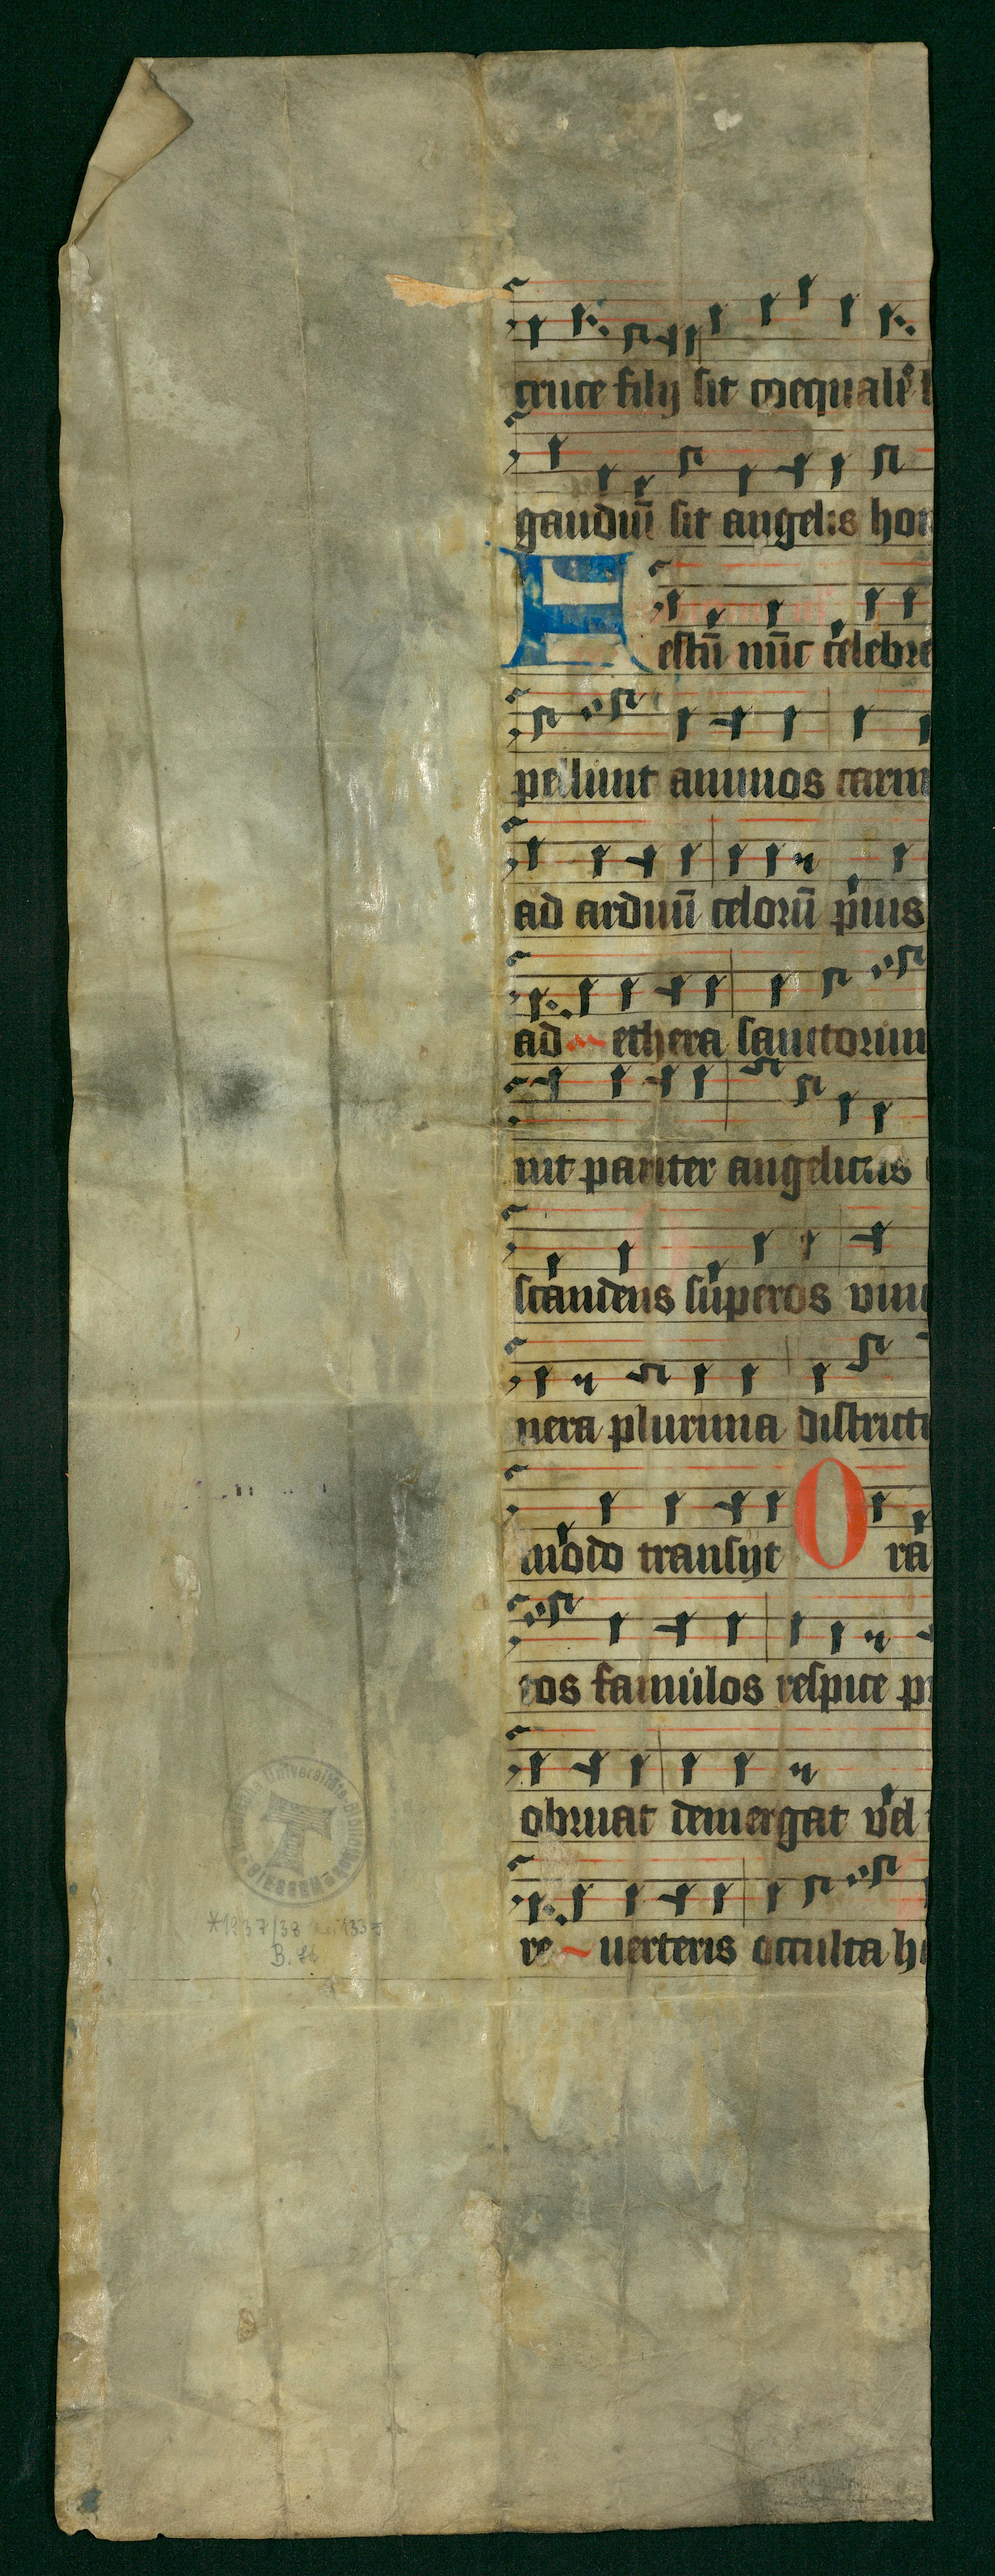 cruce filij sit coequalis
gaudiū sit angelis hon
Festū nūc celebre
pellunt animos carm
ad arduū celorū pius
ad ethera sanctorum
nit pariter angelicus
scandens superos vin
nera plurima districti
modo transijt Ora
tos famulos respice p
obruat demergat vel
re uerteris occulta h
Universitäts-Bibliothek
GIESSEN
*1937/38